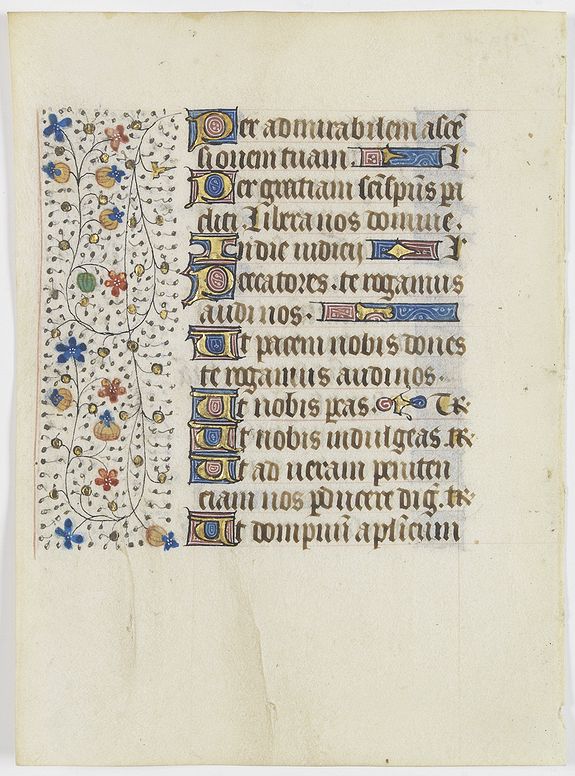 Per admirabilem ascē
sionem tuam. L'
Per gratiam sc̄i spūs pa
cliti. Libera nos domine.
In die iudicij L'
Peccatores. te rogamus
audi nos.
Ut pacem nobis dones
te rogamus audi nos.
Ut nobis p̄cas. Te R̄
Ut nobis indulgeas. te R̄
Ut ad ueram peniten
ciam nos ꝑducere diḡ. te R̄
Ut dompnū apl̄icum